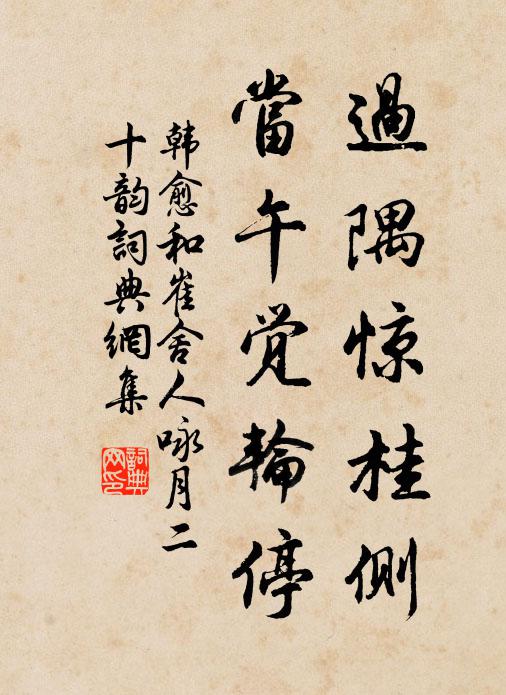 過隅惊桂側
當午覺輪停
韩愈和崔舍人咏月二
十韵詞典網集
詞典
网印